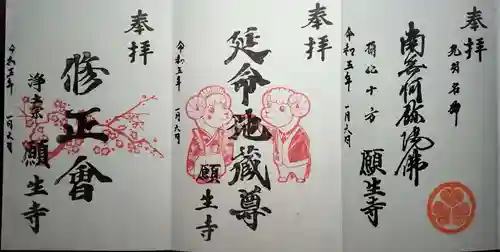 奉拝
光明名号
南無阿弥陀佛
摂化十方
願生寺
令和五年 一月六日
奉拝
延命地蔵尊
願生寺
令和五年 一月六日
奉拝
修正會
浄土宗
願生寺
令和五年 一月六日